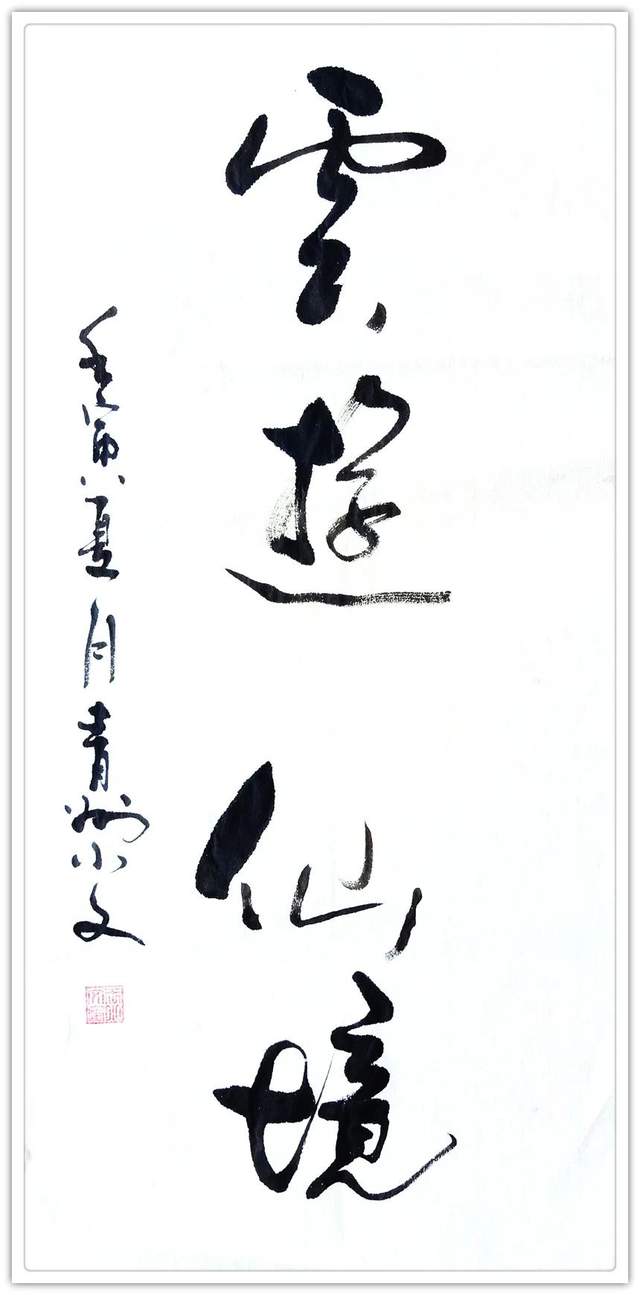 雲遊仙境
壬寅夏月青州小文